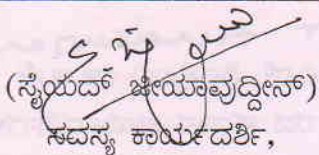 (ಸೈಯದ್ ಜೀಯಾವುದ್ದೀನ್)
ಸದಸ್ಯ ಕಾರ್ಯದರ್ಶಿ,